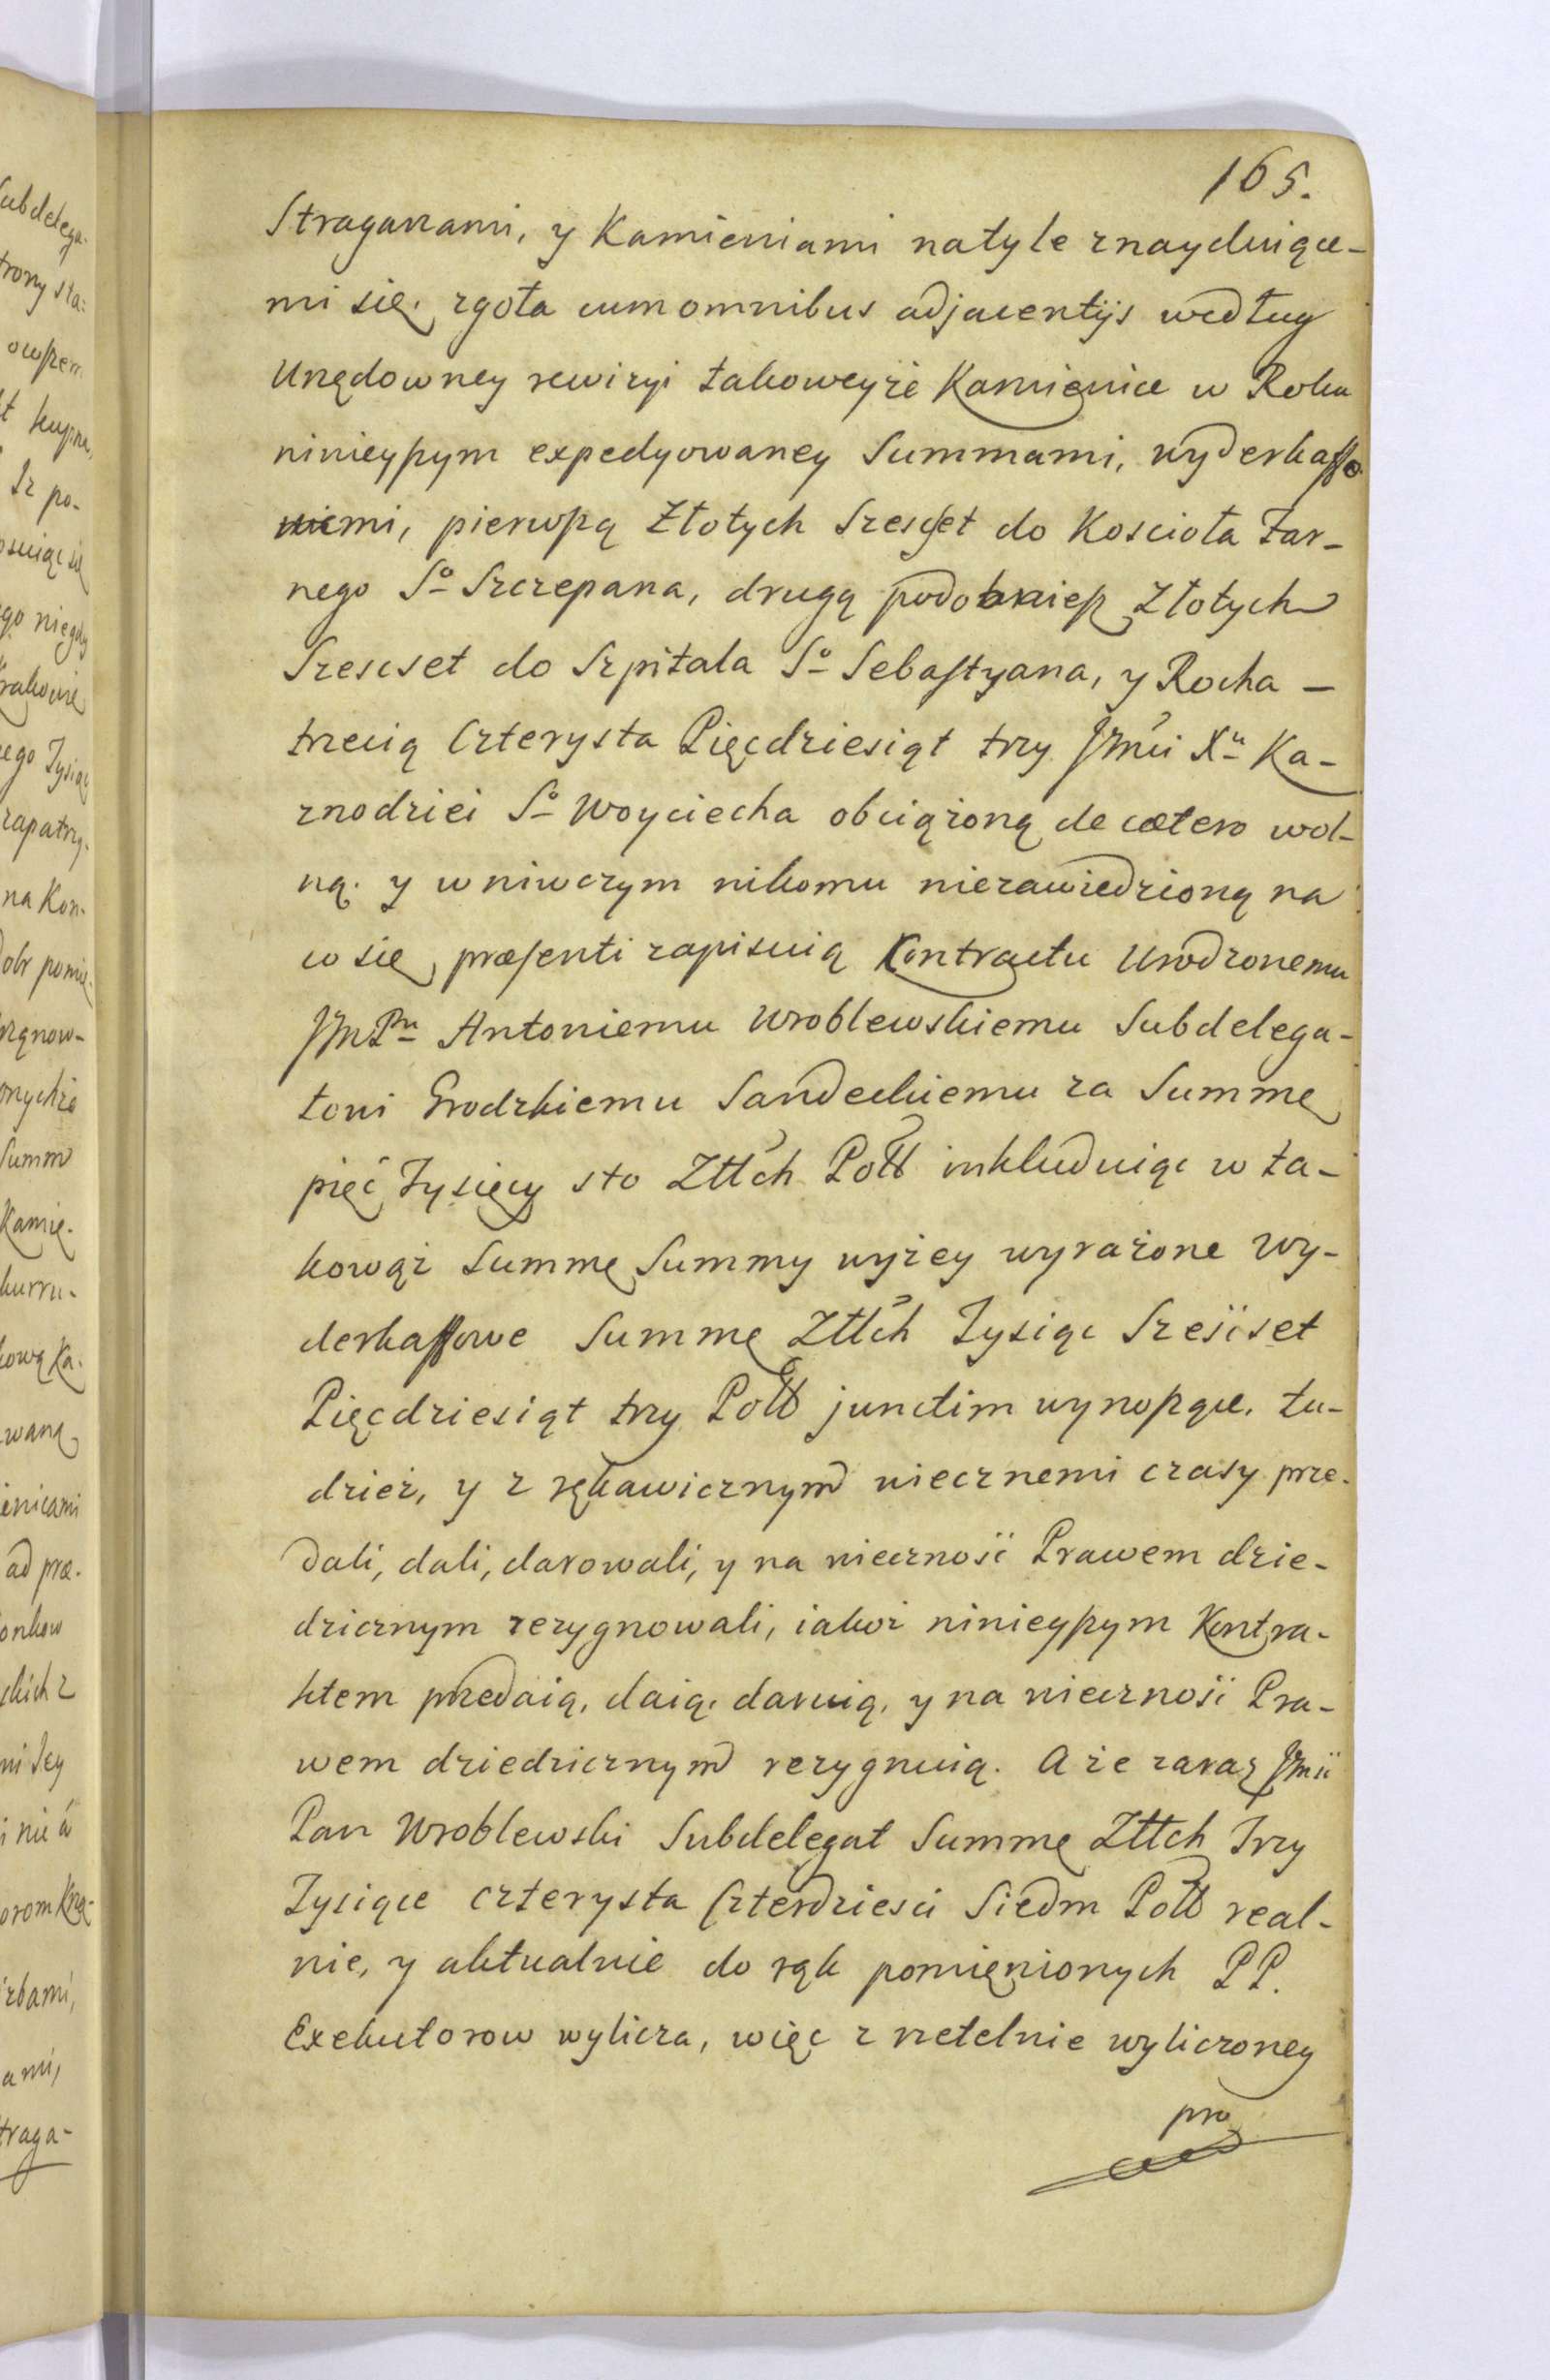 165.
Straganami, y Kamieniami natyle znayduiące-
mi się, zgoła cum omnibus adjacentijs według
Urzędowney rewizyi takoweyże Kamienice w Roku
ninieyszym expedyowaney Summami, wyderkaffo
wemi, pierwszą Złotych Szescset do Koscioła Far-
nego So Szczepana, drugą podobniesz Złotych
Szescset do Szpitala So Sebastyana, y Rocha –
trzecią Czterysta Pięcdziesiąt trzy JMci Xu Ka-
znodziei So Woyciecha obciążoną de cætero wol-
ną. y w niwczym nikomu niezawiedzioną na
w się præsenti zapisuią Kontractu Urodzonemu
JmPnu Antoniemu Wroblewskiemu Subdelega-
towi Grodzkiemu Sandeckiemu za Summę
pięć Tysięcy sto Złłch Poll inkluduiąc w ta-
kowąż Summę Summy wyżey wyrażone Wy-
derkaffowe Summę Złłch Tysiąc Sześćset
Pięcdziesiąt trzy Poll junctim wynoszące. tu-
dzież, y z rękawicznym wiecznemi czasy prze-
dali, dali, darowali, y na wieczność Prawem dzie-
dzicznym rezygnowali, iakoż ninieyszym Kontra-
ktem przedaią, daią, daruią, y na wieczność Pra-
wem dziedzicznym rezygnuią. A że zaraz JMć
Pan Wroblewski Subdelegat Summę Złłch Trzy
Tysiące czterysta Czterdziesci Siedm Poll real-
nie, y aktualnie do rąk pomięnionych PP.
Exekutorow wylicza, więc z rzetelnie wyliczoney
pro